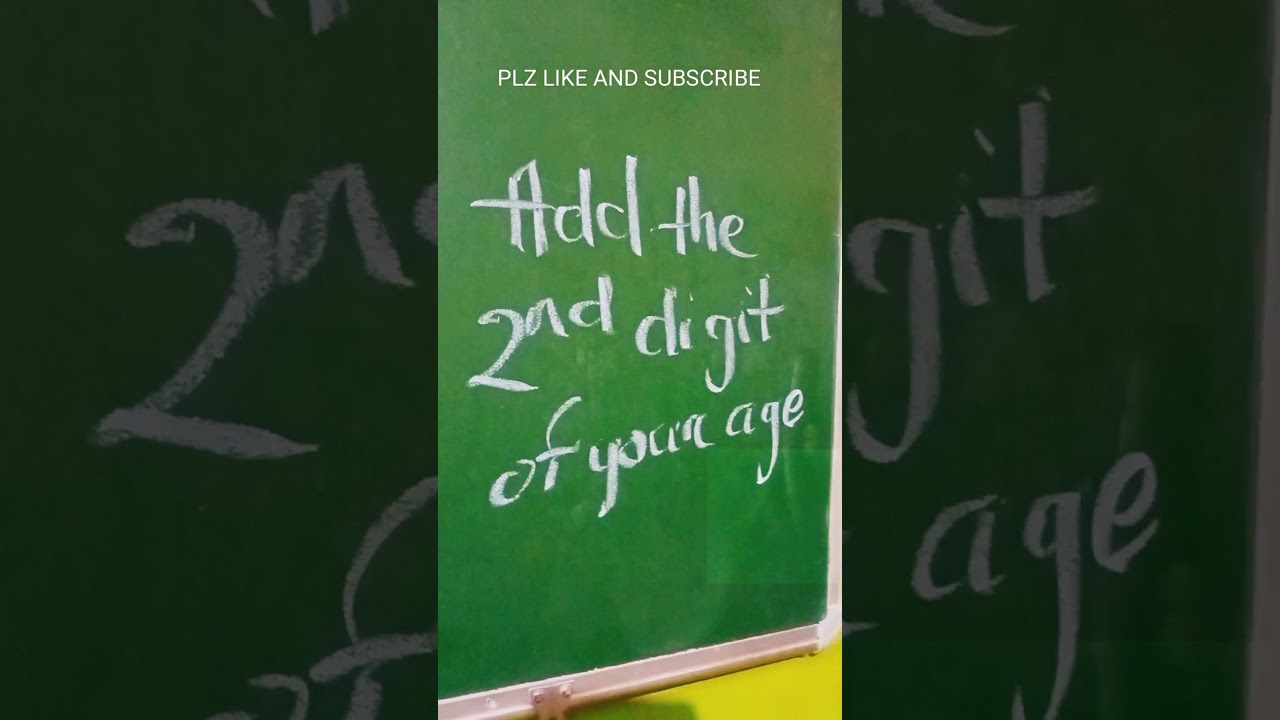 PLZ LIKE AND SUBSCRIBE
Add the
2nd digit
of your age